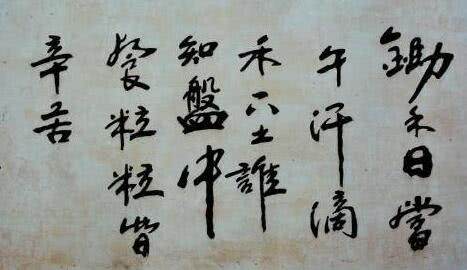 鋤禾日當
午汗滴
禾下土誰
知盤中
餐粒粒皆
辛苦